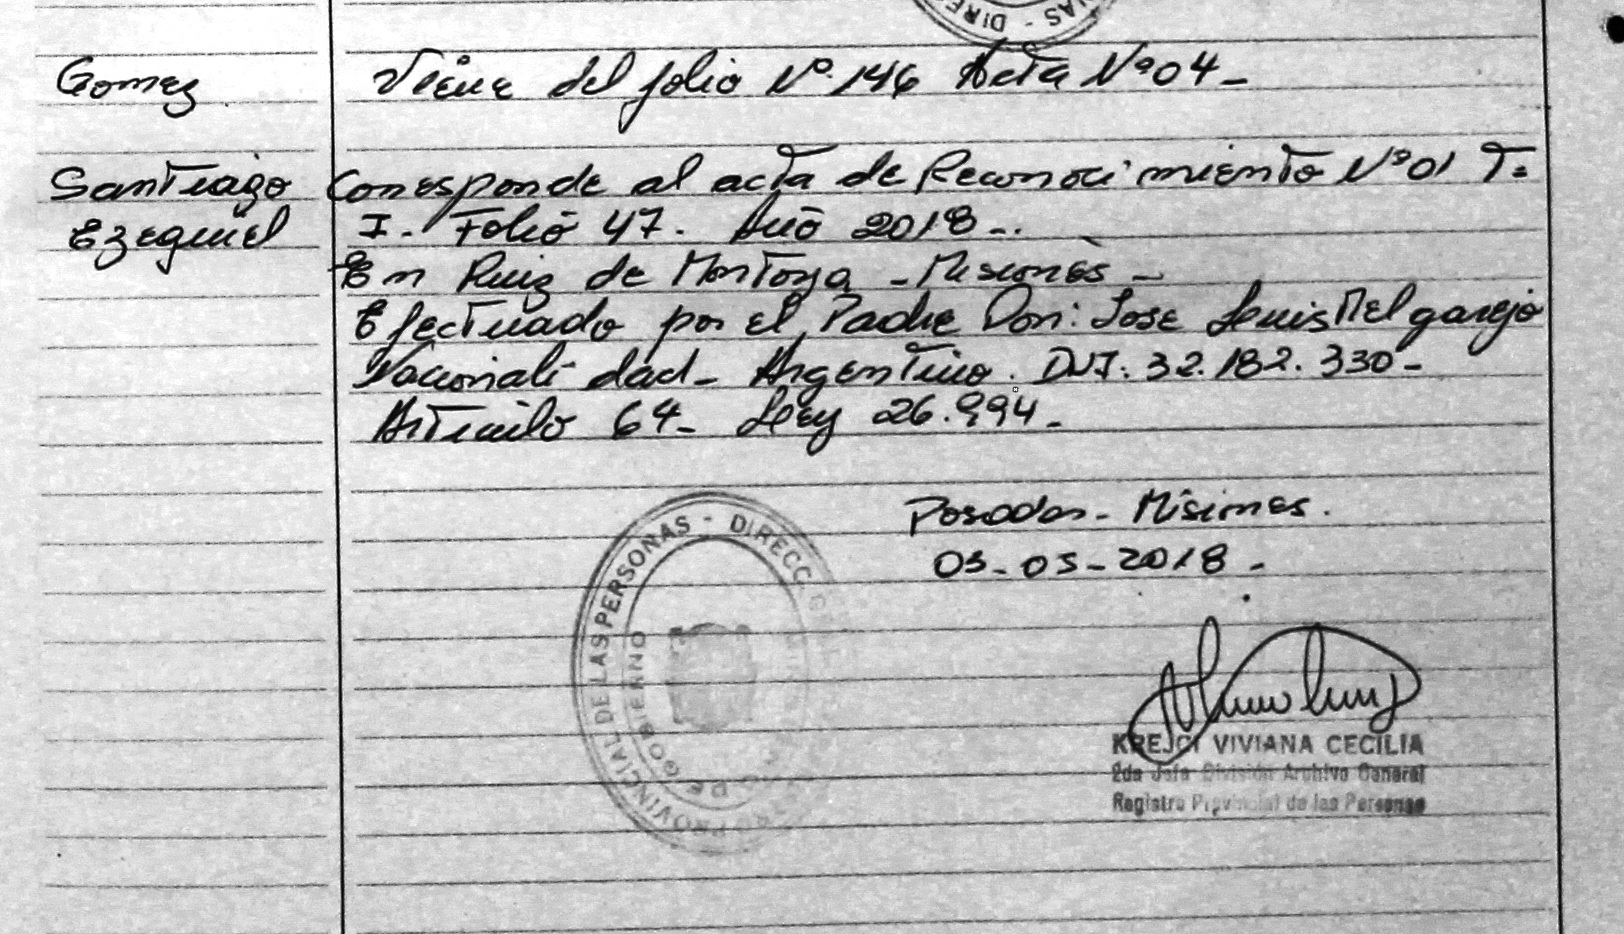 DIREC
NAS -
Gomez
Viene del folio Nº 146 Acta Nº 04 -
Santiago
Ezequiel
Corresponde al acta de Reconocimiento Nº 01 T.
I. Folio 47. Año 2018 -.
En Ruiz de Montoya - Misiones -
Efectuado por el Padre Don: Jose Luis Melgarejo
Nacionalidad - Argentino. DNI: 32.182.330 -
Articulo 64 - Ley 26.994 -
Posadas - Misiones.
03 - 05 - 2018 -
PROVINCIAL DE LAS PERSONAS - DIRECC
DE GOBIERNO
KREJCI VIVIANA CECILIA
2da Jefa División Archivo General
Registro Provincial de las Personas